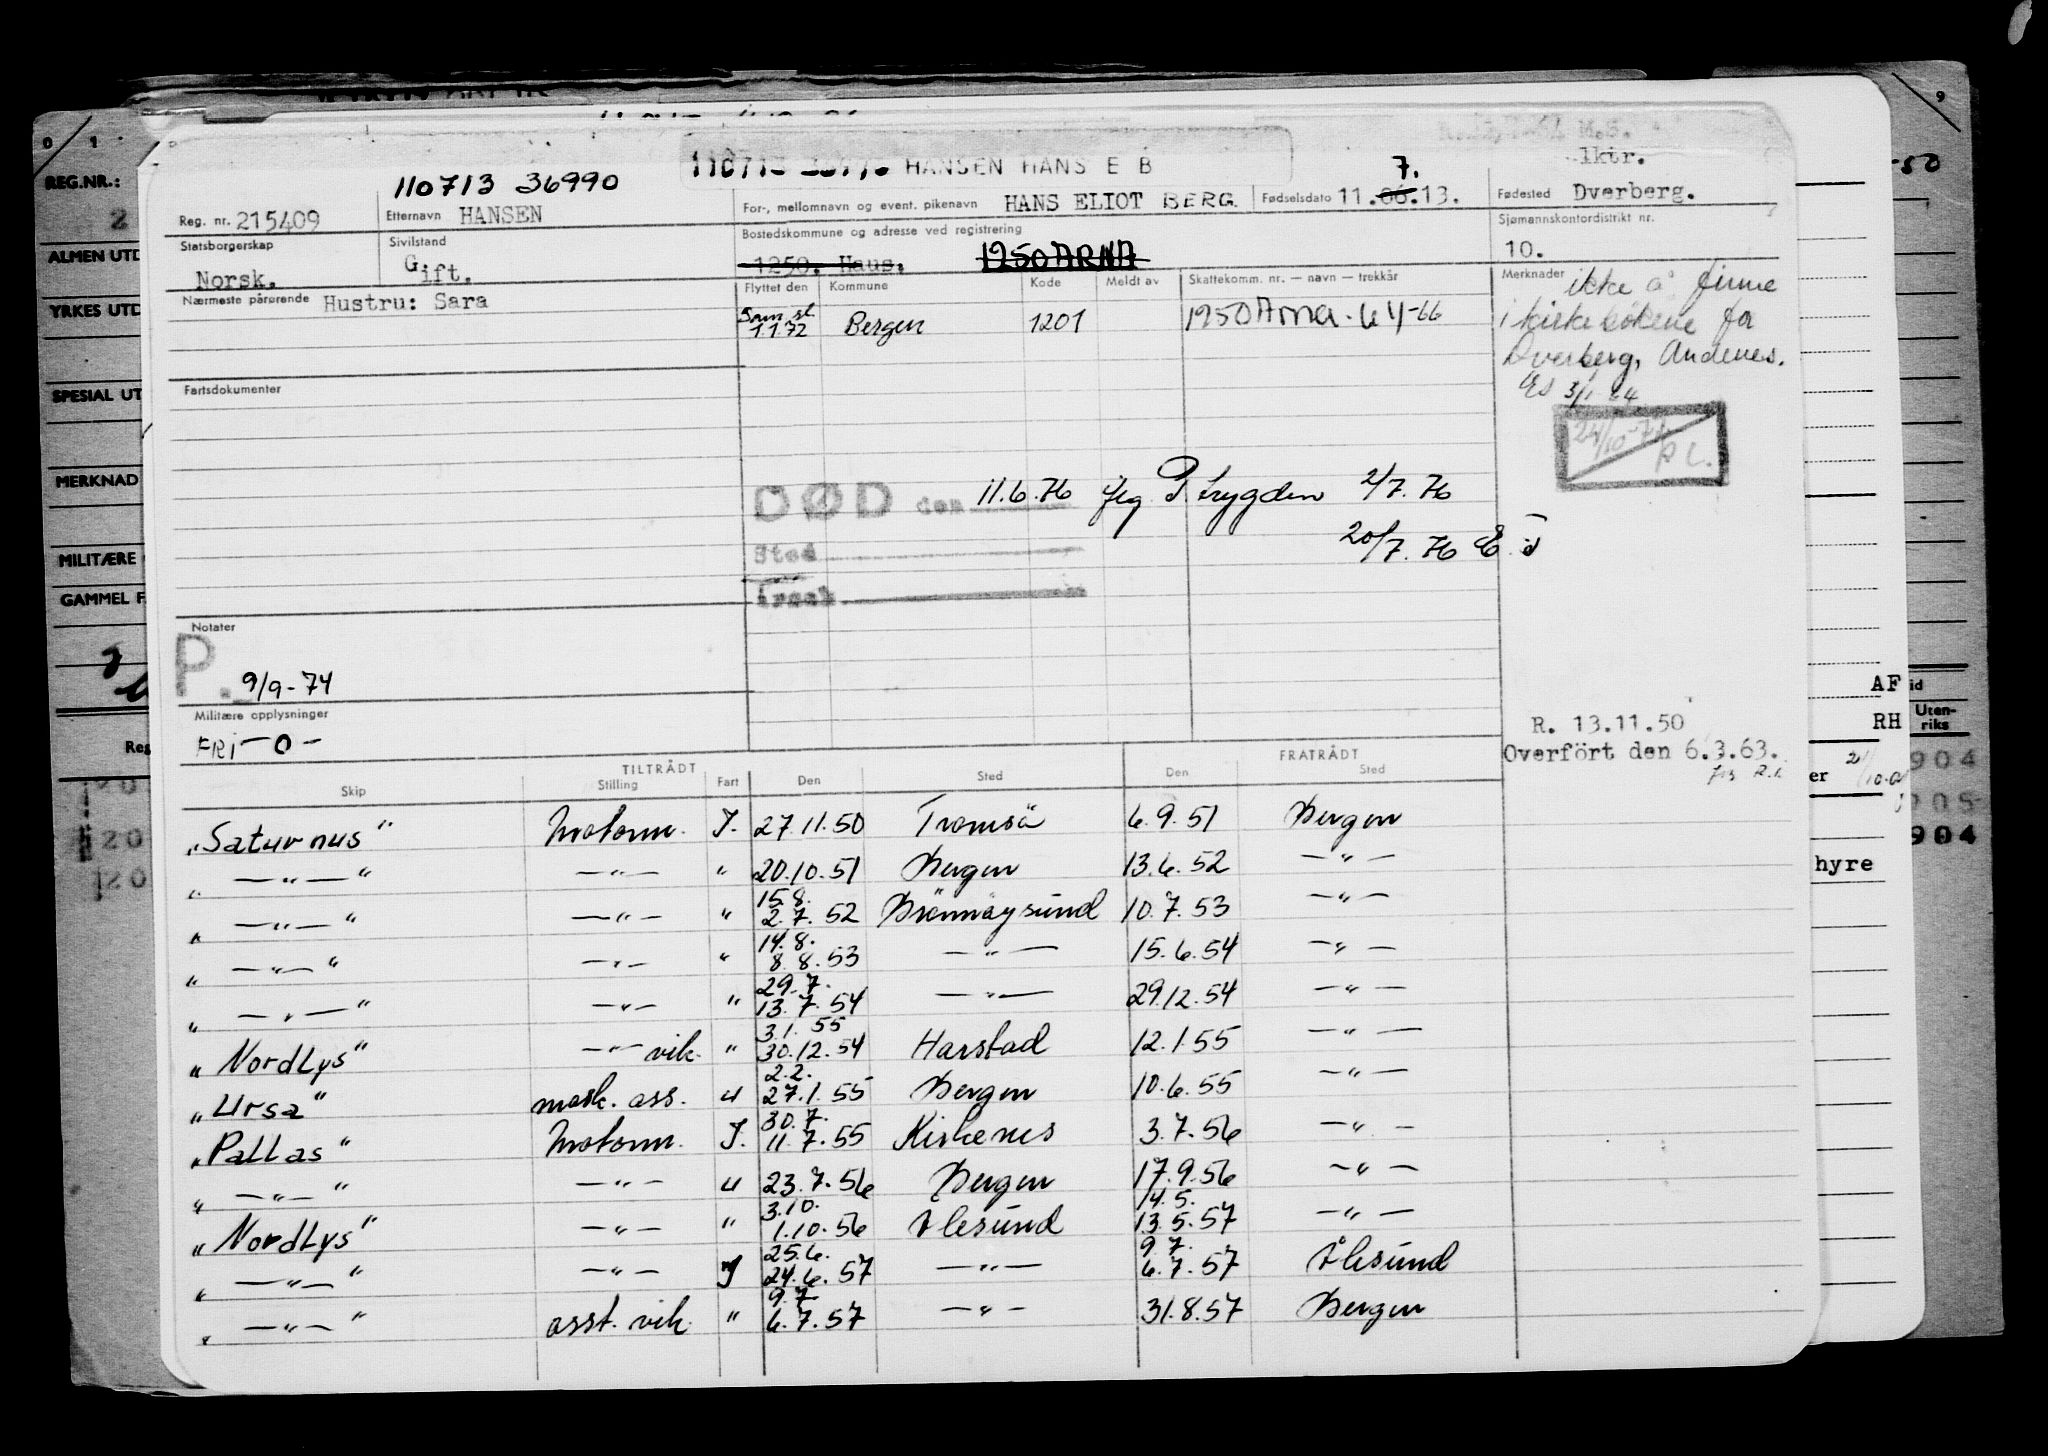 M.S.
lktr.
110713 36990 HANSEN HANS E B
Reg. nr. 215409 Etternavn HANSEN For-, mellomnavn og event. pikenavn HANS ELIOT BERG. Fødselsdato 11.06.13. 7. Fødested Dverberg.
Statsborgerskap Norsk. Sivilstand Gift. Bostedskommune og adresse ved registrering 1250. Haus. 1250 ARNA Sjømannskontordistrikt nr. 10.
Nærmeste pårørende Hustru: Sara
Flyttet den Kommune Kode Meldt av Skattekomm. nr. — navn — trekkår
Sam.sl. 1.1.72 Bergen 1201 1250 Arna - 64-66
Merknader ikke å finne
i kirkebökene for
Dverberg, Andenes.
3/1 64
24/10-74
Fartsdokumenter
DØD den 11.6.76 flg. trygden 2/7.76
20/7.76
Sted
Årsak
Notater
P. 9/9-74
Militære opplysninger
FRI - O -
R. 13.11.50
Overfört den 6.3.63.
TILTRÅDT FRATRÅDT
Skip Stilling Fart Den Sted Den Sted
"Saturnus" Motorm. I. 27.11.50 Tromsö 6.9.51 Bergen
" —"— " —"— " 20.10.51 Bergen 13.6.52 —"—
" —"— " —"— " 15.8. 2.7.52 Brönnöysund 10.7.53 —"—
" —"— " —"— " 14.8. 8.8.53 —"— 15.6.54 —"—
" —"— " —"— " 29.7. 13.7.54 —"— 29.12.54 —"—
"NordLys" —"— vik. " 3.1.55 30.12.54 Harstad 12.1.55 —"—
"Ursa" mask. ass. u 2.2. 27.1.55 Bergen 10.6.55 —"—
"Pallas" Motorm. I. 30.7. 11.7.55 Kirkenes 3.7.56 —"—
" —"— " —"— u 23.7.56 Bergen 17.9.56 —"—
"NordLys" —"— " 3.10. 1.10.56 Ålesund 14.5. 13.5.57 —"—
" —"— " —"— I 25.6. 24.6.57 —"— 9.7. 6.7.57 Ålesund
" —"— " asst. vik. " 9.7. 6.7.57 —"— 31.8.57 Bergen
REG.NR.:
ALMEN UTD
YRKES UTD
SPESIAL UT
MERKNAD
MILITÆRE
GAMMEL F
Reg
AF
RH
er
hyre
id
Uten-
riks
904
905
904